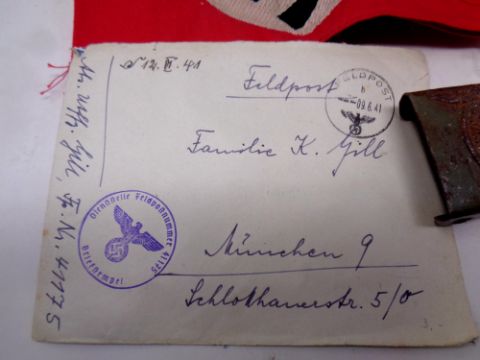 12. VI. 41
Feldpost
FELDPOST
b
09.6.41
Familie K. Gill
München 9
Schlotthauerstr. 5/0
Dienststelle Feldpostnummer 41175
Briefstempel
Gill. F. Nr. 41175